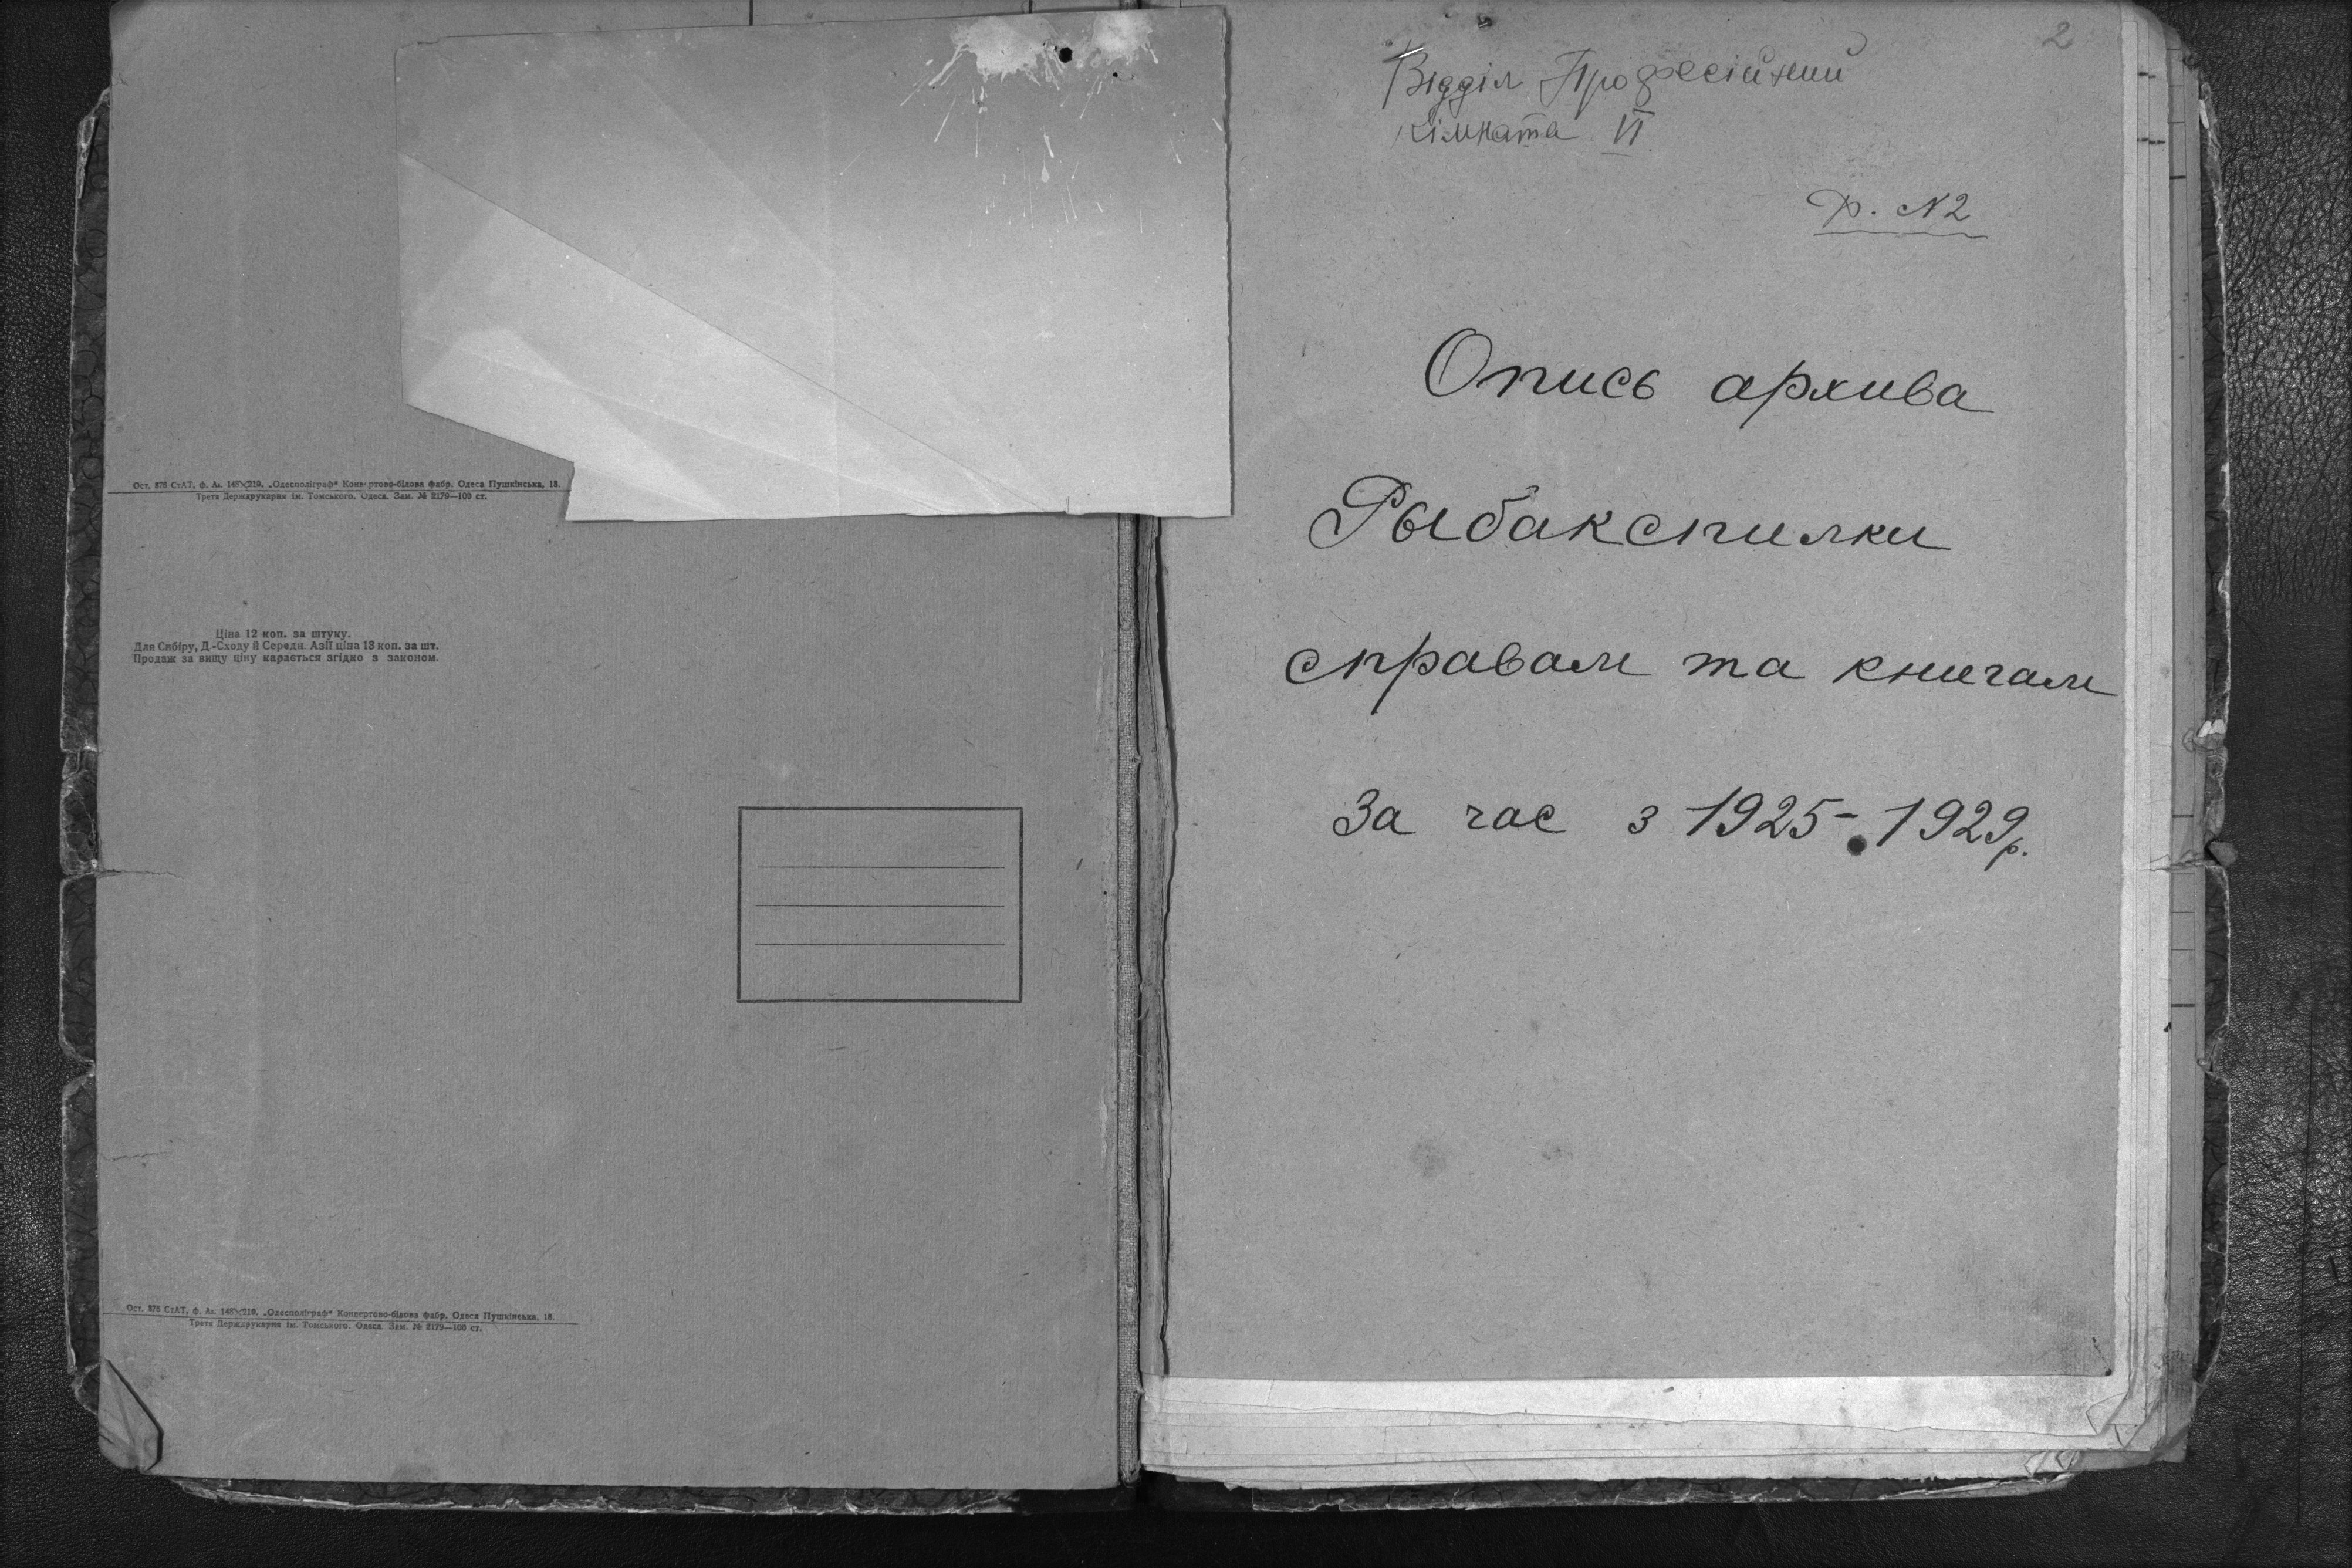 Ост. 876 СтАТ. ф. А4. 148×219. „Одесполіграф" Конвертово-білова фабр. Одеса Пушкінська, 18.
Третя Держдрукарня ім. Томського. Одеса. Зам. № 2179—100 ст.
Ціна 12 коп. за штуку.
Для Сибіру, Д.-Сходу й Середн. Азії ціна 13 коп. за шт.
Продаж за вищу ціну карається згідно з законом.
Ост. 876 СтАТ. ф. А4. 148×219. „Одесполіграф" Конвертово-білова фабр. Одеса Пушкінська, 18.
Третя Держдрукарня ім. Томського. Одеса. Зам. № 2179—100 ст.
2
Відділ Професійний
кімната VI
Ф. N2
Опись архива
Рыбакспилки
справам та книгам
За час з 1925-1929р.